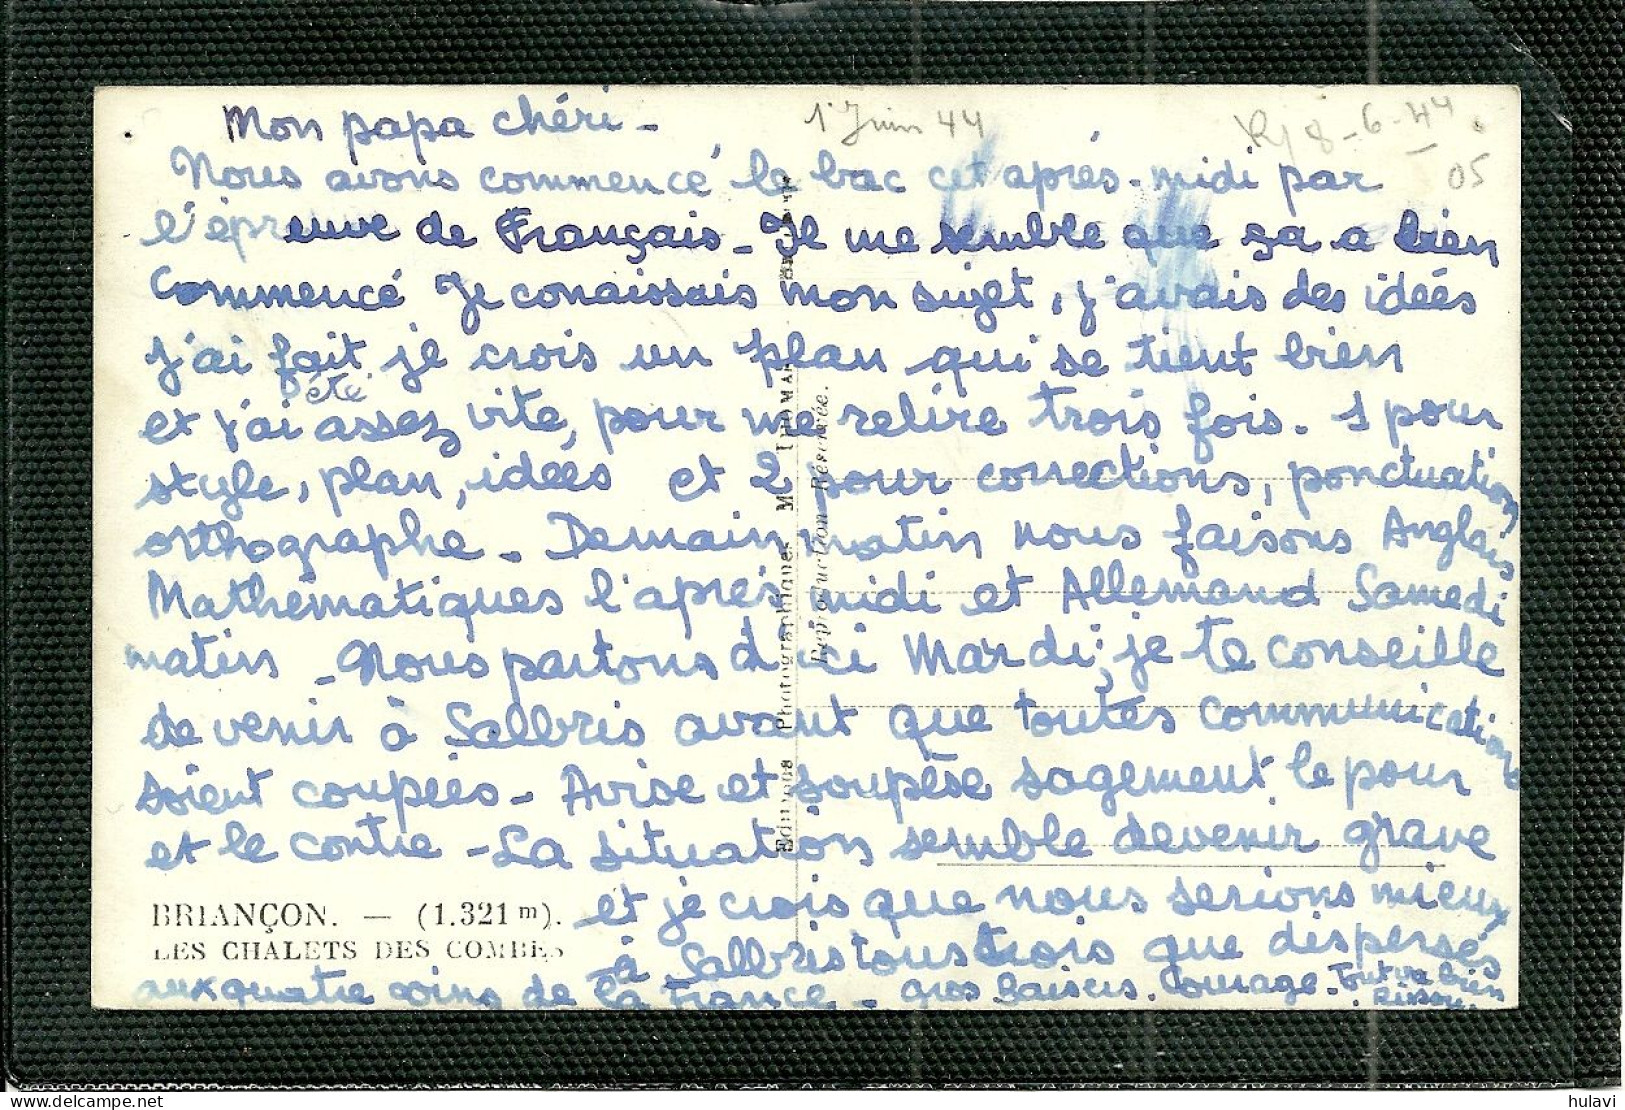 Mon papa chéri -
1 Juin 44
8-6-44
05
Nous avons commencé le bac cet après-midi par
l'épreuve de Français - Il me semble que ça a bien
commencé Je conaissais mon sujet, j'avais des idées
j'ai fait je crois un plan qui se tient bien
été
et j'ai assez vite, pour me relire trois fois. 1 pour
style, plan, idées et 2 pour corrections, ponctuation
orthographe - Demain matin nous faisons Anglais
Mathématiques l'après midi et Allemand Samedi
matin - Nous partons d'ici Mardi; je te conseille
de venir à Salbris avant que toutes communications
soient coupées - Avise et soupèse sagement le pour
et le contre - La situation semble devenir grave
et je crois que nous serions mieux
à Salbris tous trois que dispersés
aux quatre coins de la France - Gros baisers. Courage. Tout va bien
BRIANÇON. — (1.321 m).
LES CHALETS DES COMBES
Editions Photographiques M.
Reproduction Réservée.
hulavi